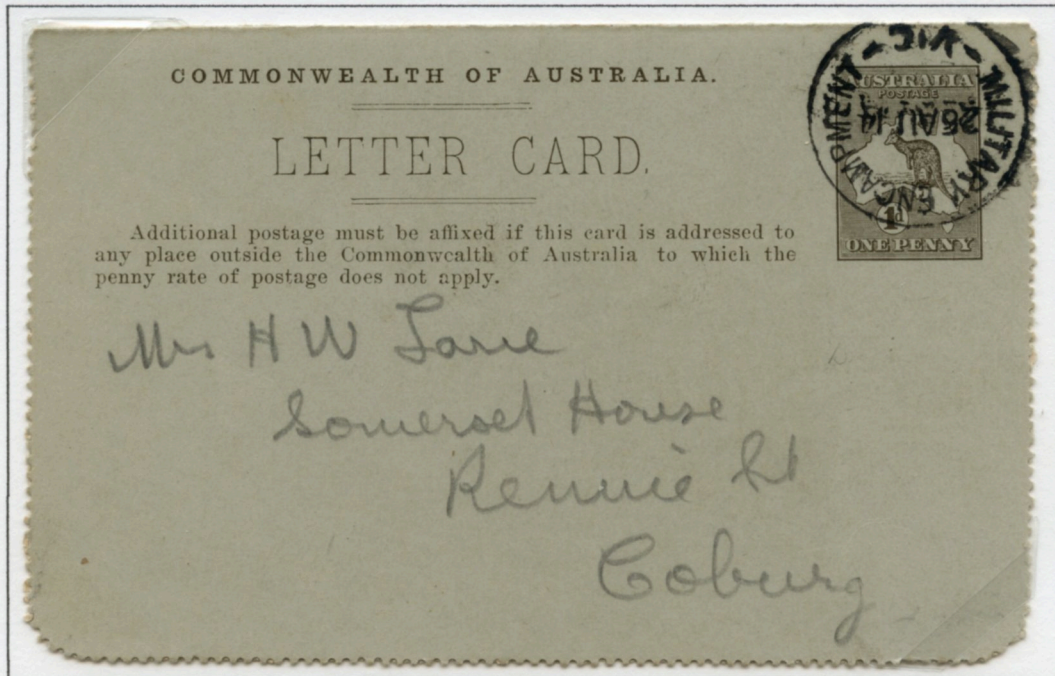 COMMONWEALTH OF AUSTRALIA.
LETTER CARD.
Additional postage must be affixed if this card is addressed to
any place outside the Commonwealth of Australia to which the
penny rate of postage does not apply.
AUSTRALIA
POSTAGE
1d
ONE PENNY
MILITARY ENCAMPMENT - VIC -
26 AU 14
Mrs H W Lane
Somerset House
Rennie St
Coburg